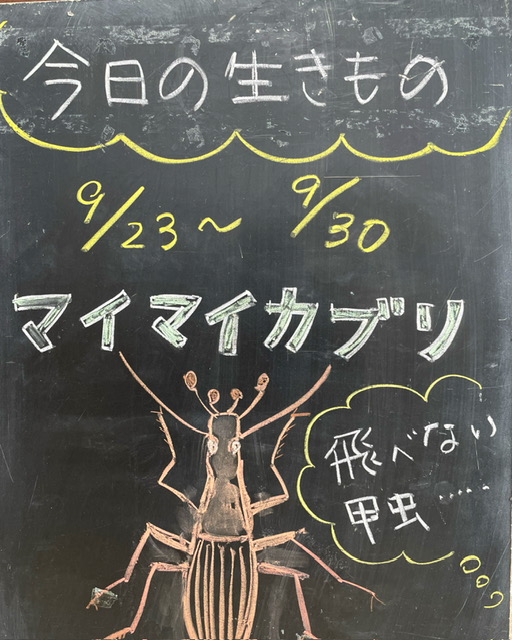 今日の生きもの
9/23〜9/30
マイマイカブリ
飛べない
甲虫.....